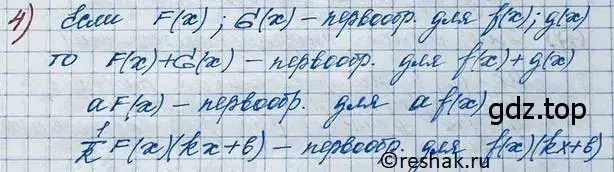 4) Если F(x); G(x) – первообр. для f(x); g(x)
то F(x)+G(x) – первообр. для f(x)+g(x)
aF(x) – первообр. для a f(x)
1/k F(x)(kx+b) – первообр. для f(x)(kx+b)
gdz.top
©reshak.ru